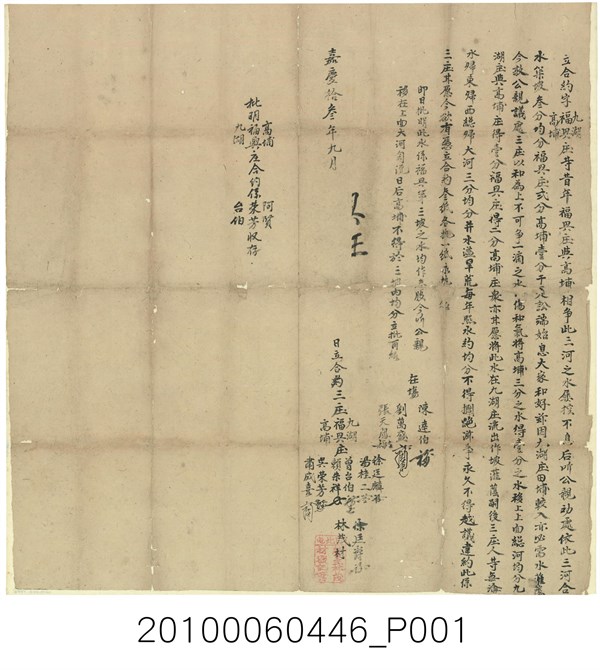 立合約字九湖高埔福興庄等昔年福興庄與高埔相爭此三河之水屢控不息后听公親劝處依此三河合
水築坡叁分均分福興庄弍分高埔壹分于是訟端始息大家和好茲因九湖庄田埔較入亦必需水灌蔭
今放公親議處三庄以和為上不可爭一滴之水傷和氣將高埔三分之水得壹分之水移上上南総河均分九
湖庄與高埔庄得壹分福興庄得二分高埔庄眾亦甘愿將此水在九湖庄流出作坡灌蔭嗣後三庄人等無論
水歸東歸西総歸大河三分均分并水濫旱荒每年照水約均分不得攔絕滋爭永久不得越議違約此係
三庄甘愿今欲有憑立合約叁紙各执一紙永炤
即日批明此水係福興第三坡之水均作叁股今听公親
移在上南大河自流日后高埔不得於三坡南均分立批再炤
在塲 陳達伯
劉萬
張天
嘉慶拾叁年九月
日立合約三庄九湖福興庄高埔
徐廷
湯桂二
曾台伯
賴來祥
吳榮芳
蕭威喜
徐廷
林茂
批明高埔福興九湖庄合約係阿賢榮芳台伯收存
20100060446_P001